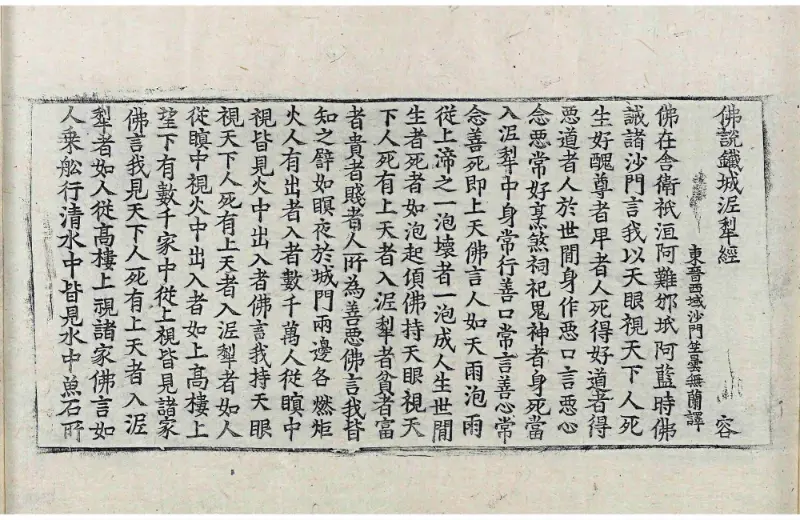 佛說鐵城泥犁經 容
東晉西域沙門竺曇無蘭譯
佛在舍衛祇洹阿難邠坻阿藍時佛
誡諸沙門言我以天眼視天下人死
生好醜尊者卑者人死得好道者得
惡道者人於世間身作惡口言惡心
念惡常好烹煞祠祀鬼神者身死當
入泥犁中身常行善口常言善心常
念善死即上天佛言人如天雨泡雨
從上渧之一泡壞者一泡成人生世間
生者死者如泡起頃佛持天眼視天
下人死有上天者入泥犁者貧者富
者貴者賤者人所為善惡佛言我皆
知之譬如瞑夜於城門兩邊各燃炬
火人有出者入者數千萬人從瞑中
視皆見火中出入者佛言我持天眼
視天下人死有上天者入泥犁者如人
從瞑中視火中出入者如上高樓上
望下有數千家中從上視皆見諸家
佛言我見天下人死有上天者入泥
犁者如人從高樓上視諸家佛言如
人乘舩行清水中皆見水中魚石所